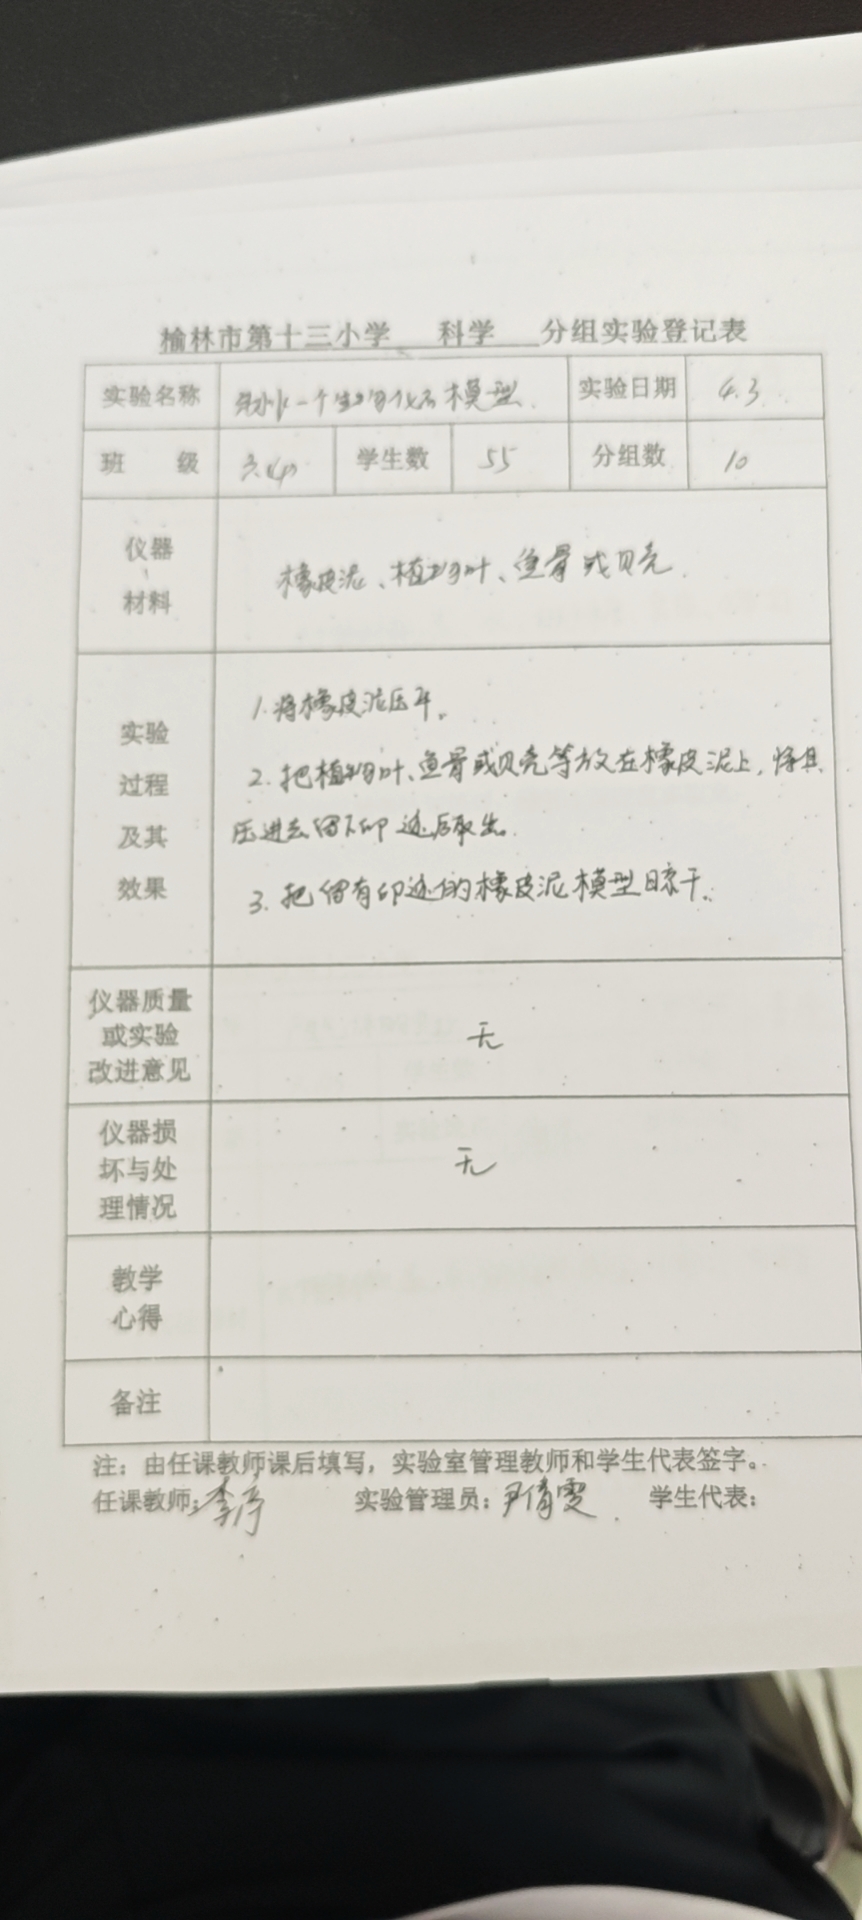 榆林市第十三小学 科学 分组实验登记表
实验名称 制作一个生物化石模型. 实验日期 4.3
班 级 学生数 55 分组数 10
仪器材料 橡皮泥、植物叶、鱼骨或贝壳.
实验过程及其效果
1.将橡皮泥压平。
2.把植物叶、鱼骨或贝壳等放在橡皮泥上,将其
压进去留下印迹后取出。
3.把留有印迹的橡皮泥模型晾干。
仪器质量或实验改进意见 无
仪器损坏与处理情况 无
教学心得
备注
注:由任课教师课后填写,实验室管理教师和学生代表签字。
任课教师:李 实验管理员:尹倩雯 学生代表: